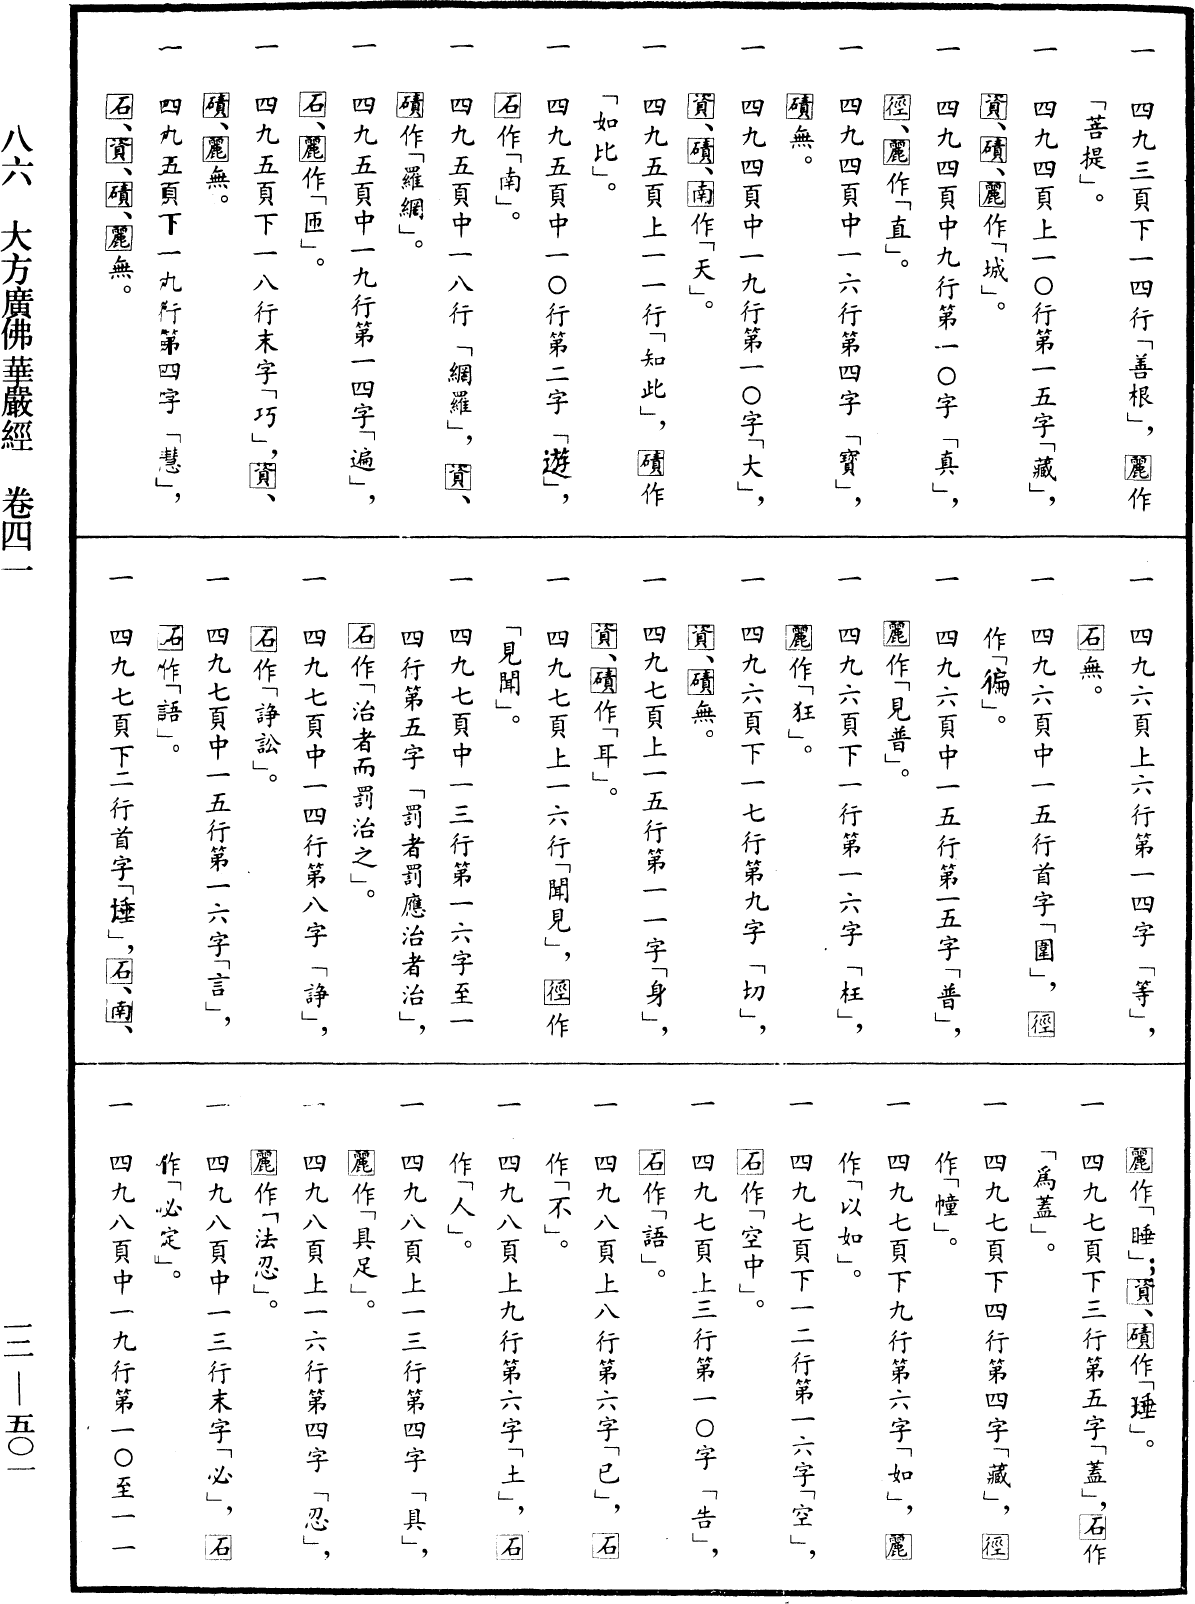 一　四九三頁下一四行「善根」，麗作
「菩提」。
一　四九四頁上一〇行第一五字「藏」，
資、磧、麗作「城」。
一　四九四頁中九行第一〇字「真」，
徑、麗作「直」。
一　四九四頁中一六行第四字「寶」，
磧無。
一　四九四頁中一九行第一〇字「大」，
資、磧、南作「天」。
一　四九五頁上一一行「知此」，磧作
「如比」。
一　四九五頁中一〇行第二字「遊」，
石作「南」。
一　四九五頁中一八行「網羅」，資、
磧作「羅網」。
一　四九五頁中一九行第一四字「遍」，
石、麗作「匝」。
一　四九五頁下一八行末字「巧」，資、
磧、麗無。
一　四九五頁下一九行第四字「慧」，
石、資、磧、麗無。
一　四九六頁上六行第一四字「等」，
石無。
一　四九六頁中一五行首字「圍」，徑
作「徧」。
一　四九六頁中一五行第一五字「普」，
麗作「見普」。
一　四九六頁下一行第一六字「枉」，
麗作「狂」。
一　四九六頁下一七行第九字「切」，
資、磧無。
一　四九七頁上一五行第一一字「身」，
資、磧作「耳」。
一　四九七頁上一六行「聞見」，徑作
「見聞」。
一　四九七頁中一三行第一六字至一
四行第五字「罰者罰應治者治」，
石作「治者而罰治之」。
一　四九七頁中一四行第八字「諍」，
石作「諍訟」。
一　四九七頁中一五行第一六字「言」，
石作「語」。
一　四九七頁下二行首字「埵」，石、南、
麗作「睡」；資、磧作「㻔」。
一　四九七頁下三行第五字「蓋」，石作
「爲蓋」。
一　四九七頁下四行第四字「藏」，徑
作「幢」。
一　四九七頁下九行第六字「如」，麗
作「以如」。
一　四九七頁下一二行第一六字「空」，
石作「空中」。
一　四九七頁上三行第一〇字「告」，
石作「語」。
一　四九八頁上八行第六字「已」，石
作「不」。
一　四九八頁上九行第六字「土」，石
作「人」。
一　四九八頁上一三行第四字「具」，
麗作「具足」。
一　四九八頁上一六行第四字「忍」，
麗作「法忍」。
一　四九八頁中一三行末字「必」，石
作「必定」。
一　四九八頁中一九行第一〇至一一
八六　大方廣佛華嚴經　卷四一
一二—五〇一